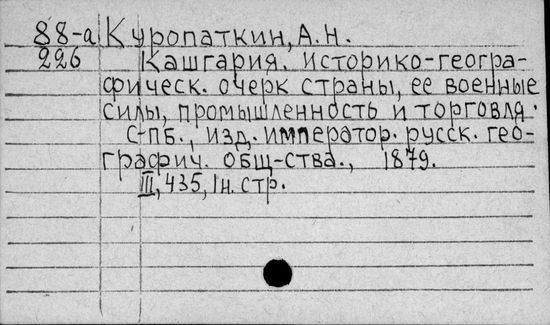 88-а Куропаткин, А.Н.
226 Кашгария. историко-геогра-
фическ. очерк страны, ее военные
силы, промышленность и торговля.
С-пб., изд. император. русск. гео-
графич. общ-ства., 1879.
III, 435, 1н. стр.